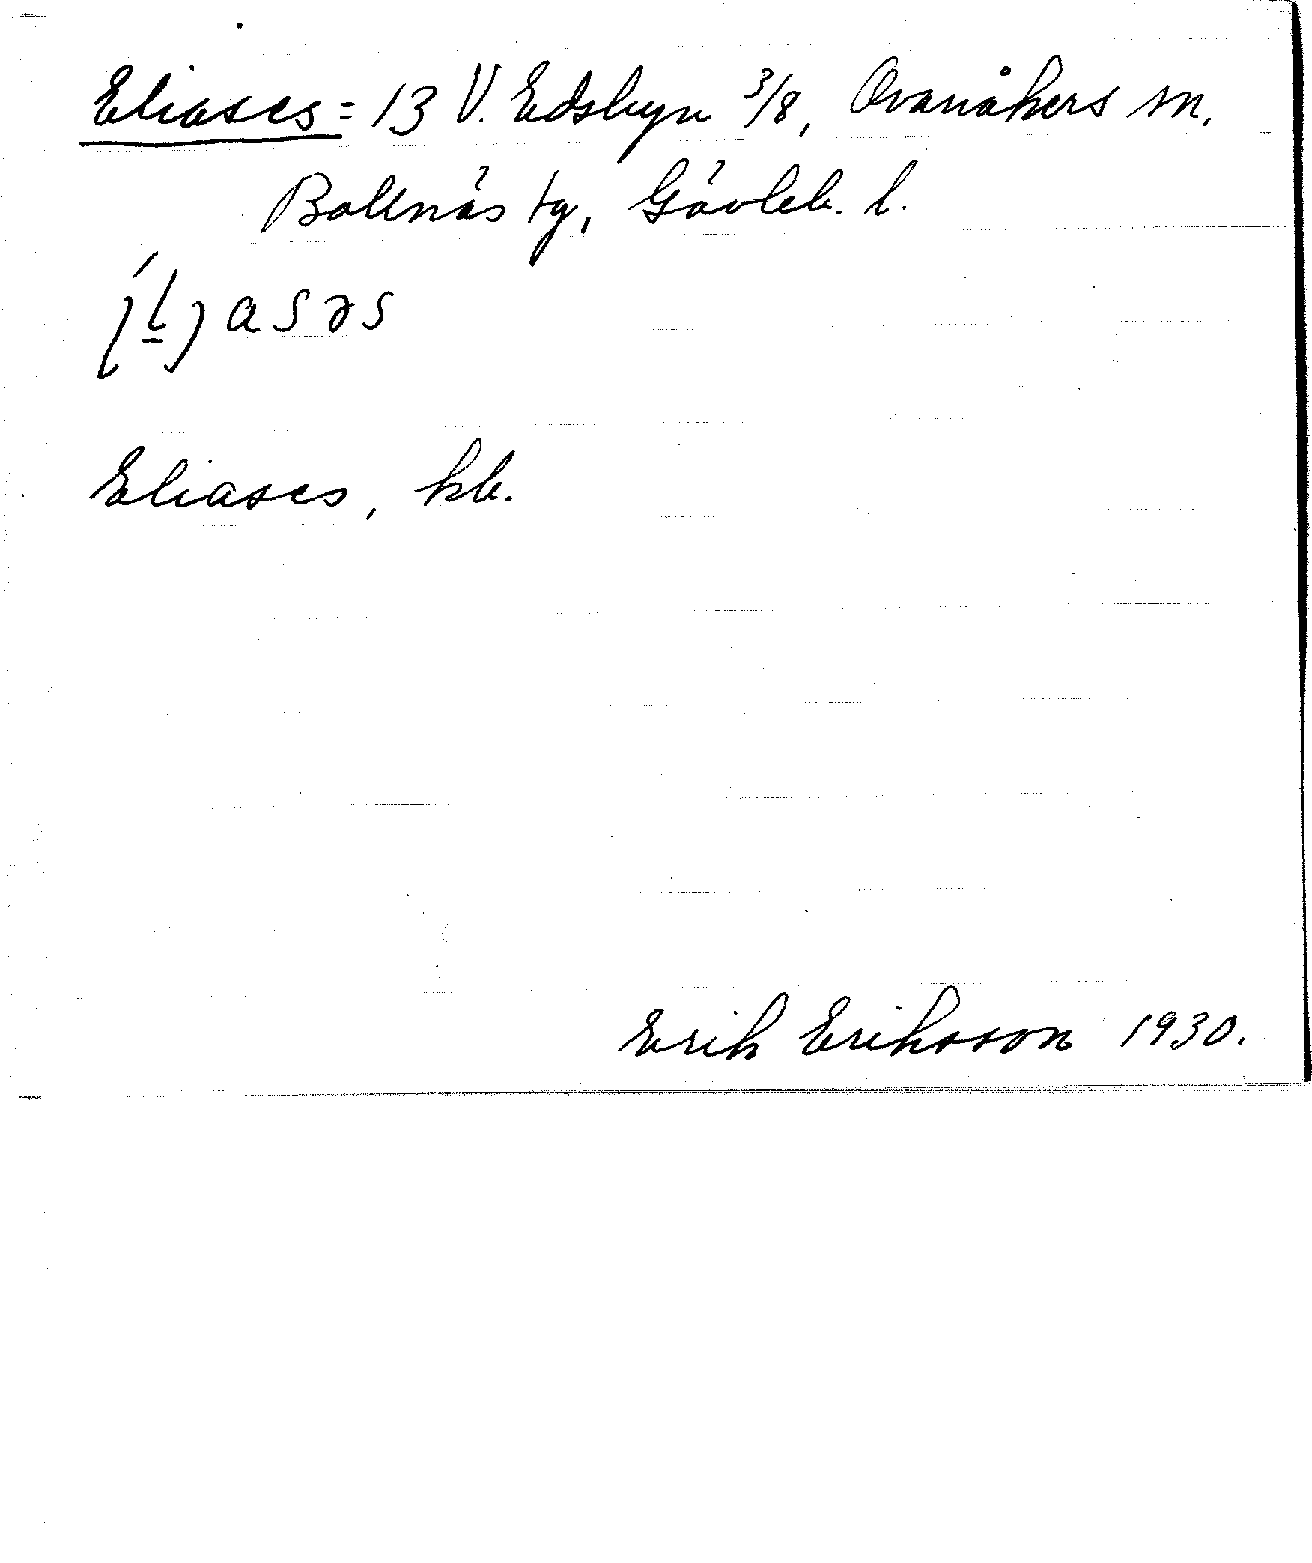 Eliases = 13 V. Edsbyn 3/8, Ovanåkers sn.
Bollnäs tg, Gävleb. l.
Eliases, kb.
Erik Eriksson 1930.